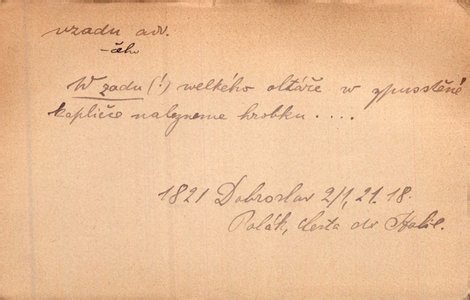 vzadu adv.
-čeho
W zadu (!) welkého oltáře w zpustěné
kapličce nalezneme hrobku . . . .
1821 Dobroslav 2/1, 21. 18.
Polák, Cesta do Italie.